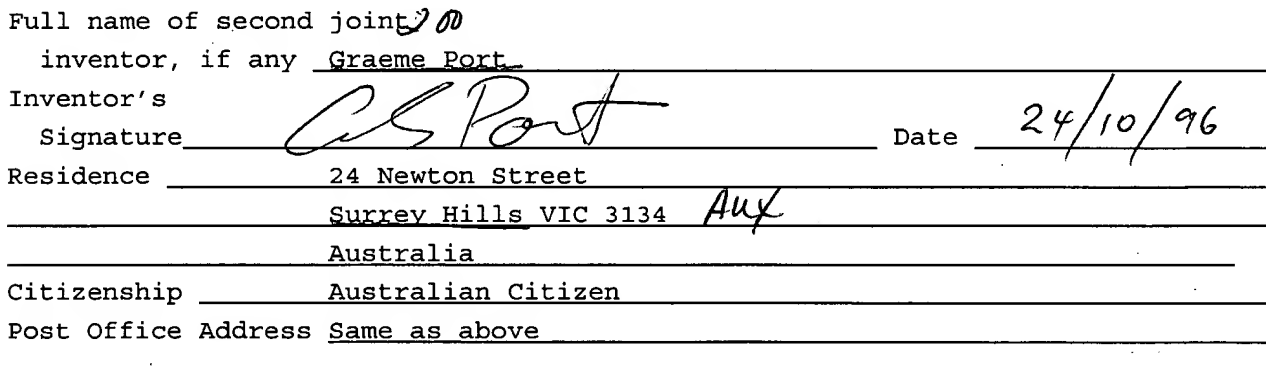 Full name of second joint 200
inventor, if any Graeme Port
Inventor's
Signature GS Port Date 24/10/96
Residence 24 Newton Street
Surrey Hills VIC 3134 AUX
Australia
Citizenship Australian Citizen
Post Office Address Same as above